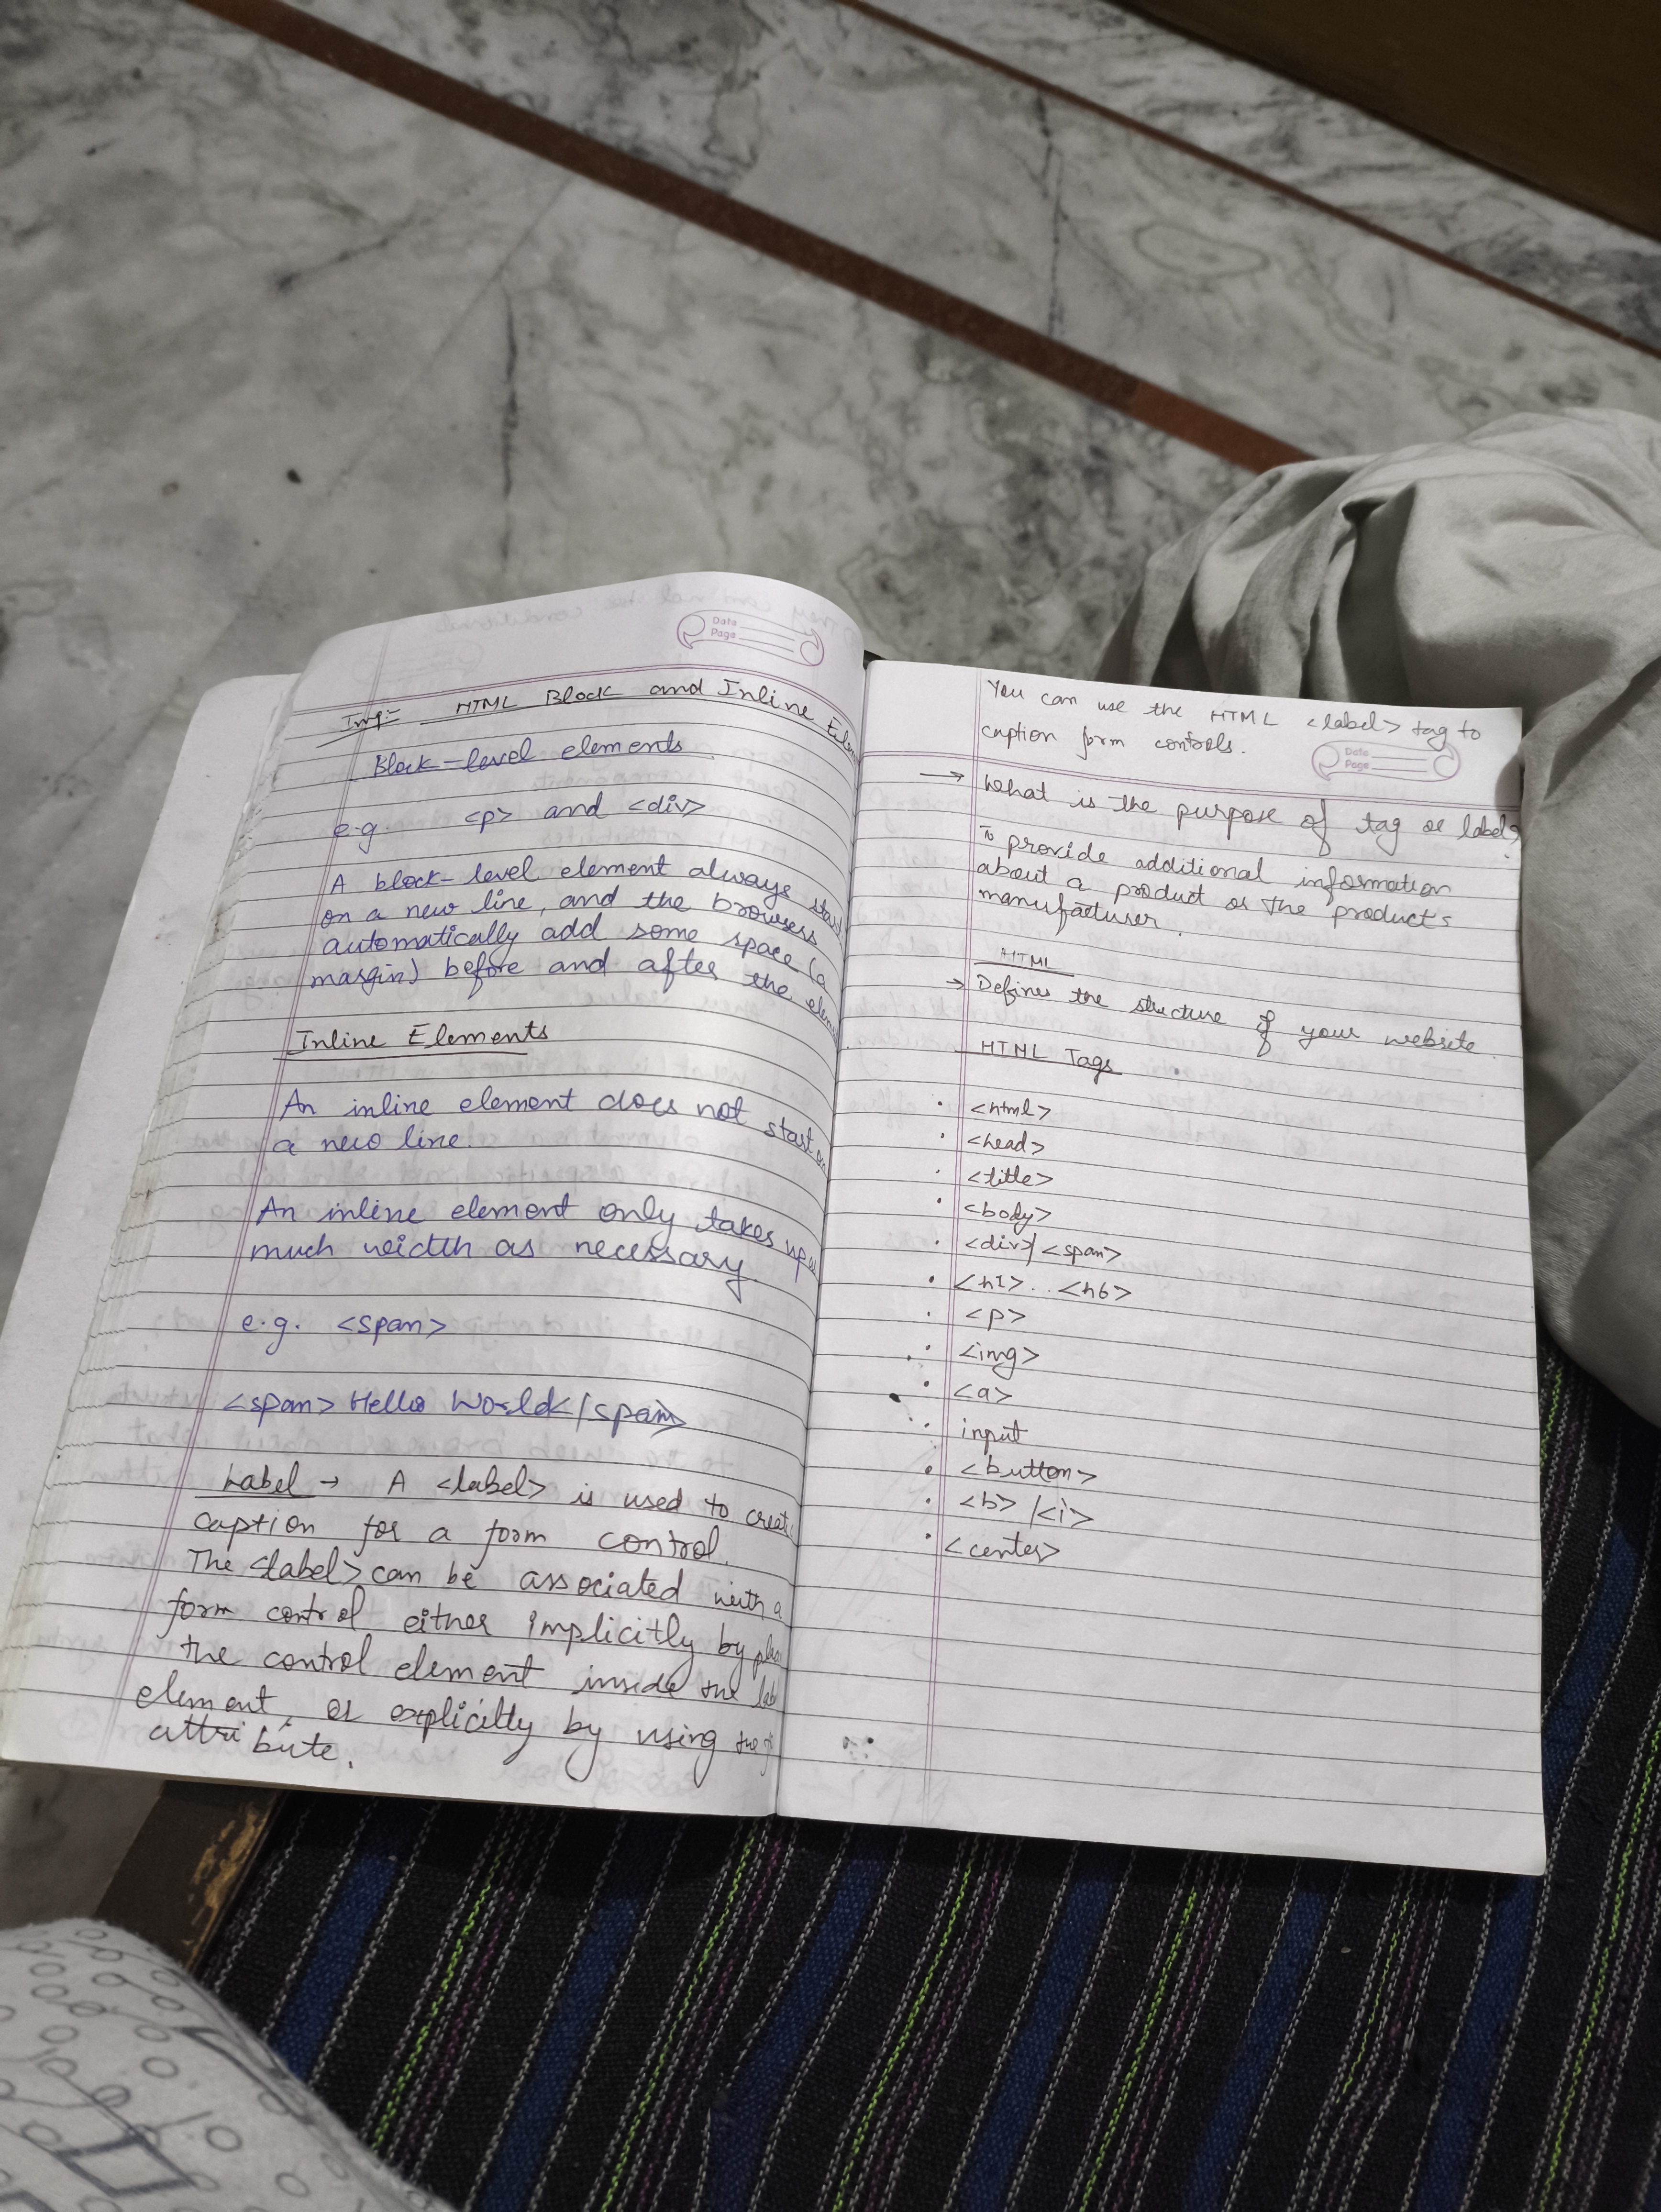 Date
Page
Imp:- HTML Block and Inline Elem
Block-level elements
e.g. <p> and <div>
A block-level element always start
on a new line, and the browsers
automatically add some space (a
margin) before and after the elem
Inline Elements
An inline element does not start on
a new line.
An inline element only takes up as
much width as necessary.
e.g. <span>
<span> Hello World</span>
Label → A <label> is used to create
caption for a form control.
The <label> can be associated with a
form control either implicitly by
the control element inside the lab
element, or explicitly by using the
attribute.
You can use the HTML <label> tag to
caption form controls.
Date
Page
→ What is the purpose of tag or label?
To provide additional information
about a product or the product's
manufacturer.
HTML
→ Defines the structure of your website.
HTML Tags
• <html>
• <head>
• <title>
• <body>
• <div>/<span>
• <h1>..<h6>
• <p>
• <img>
• <a>
• input
• <button>
• <b> /<i>
• <center>